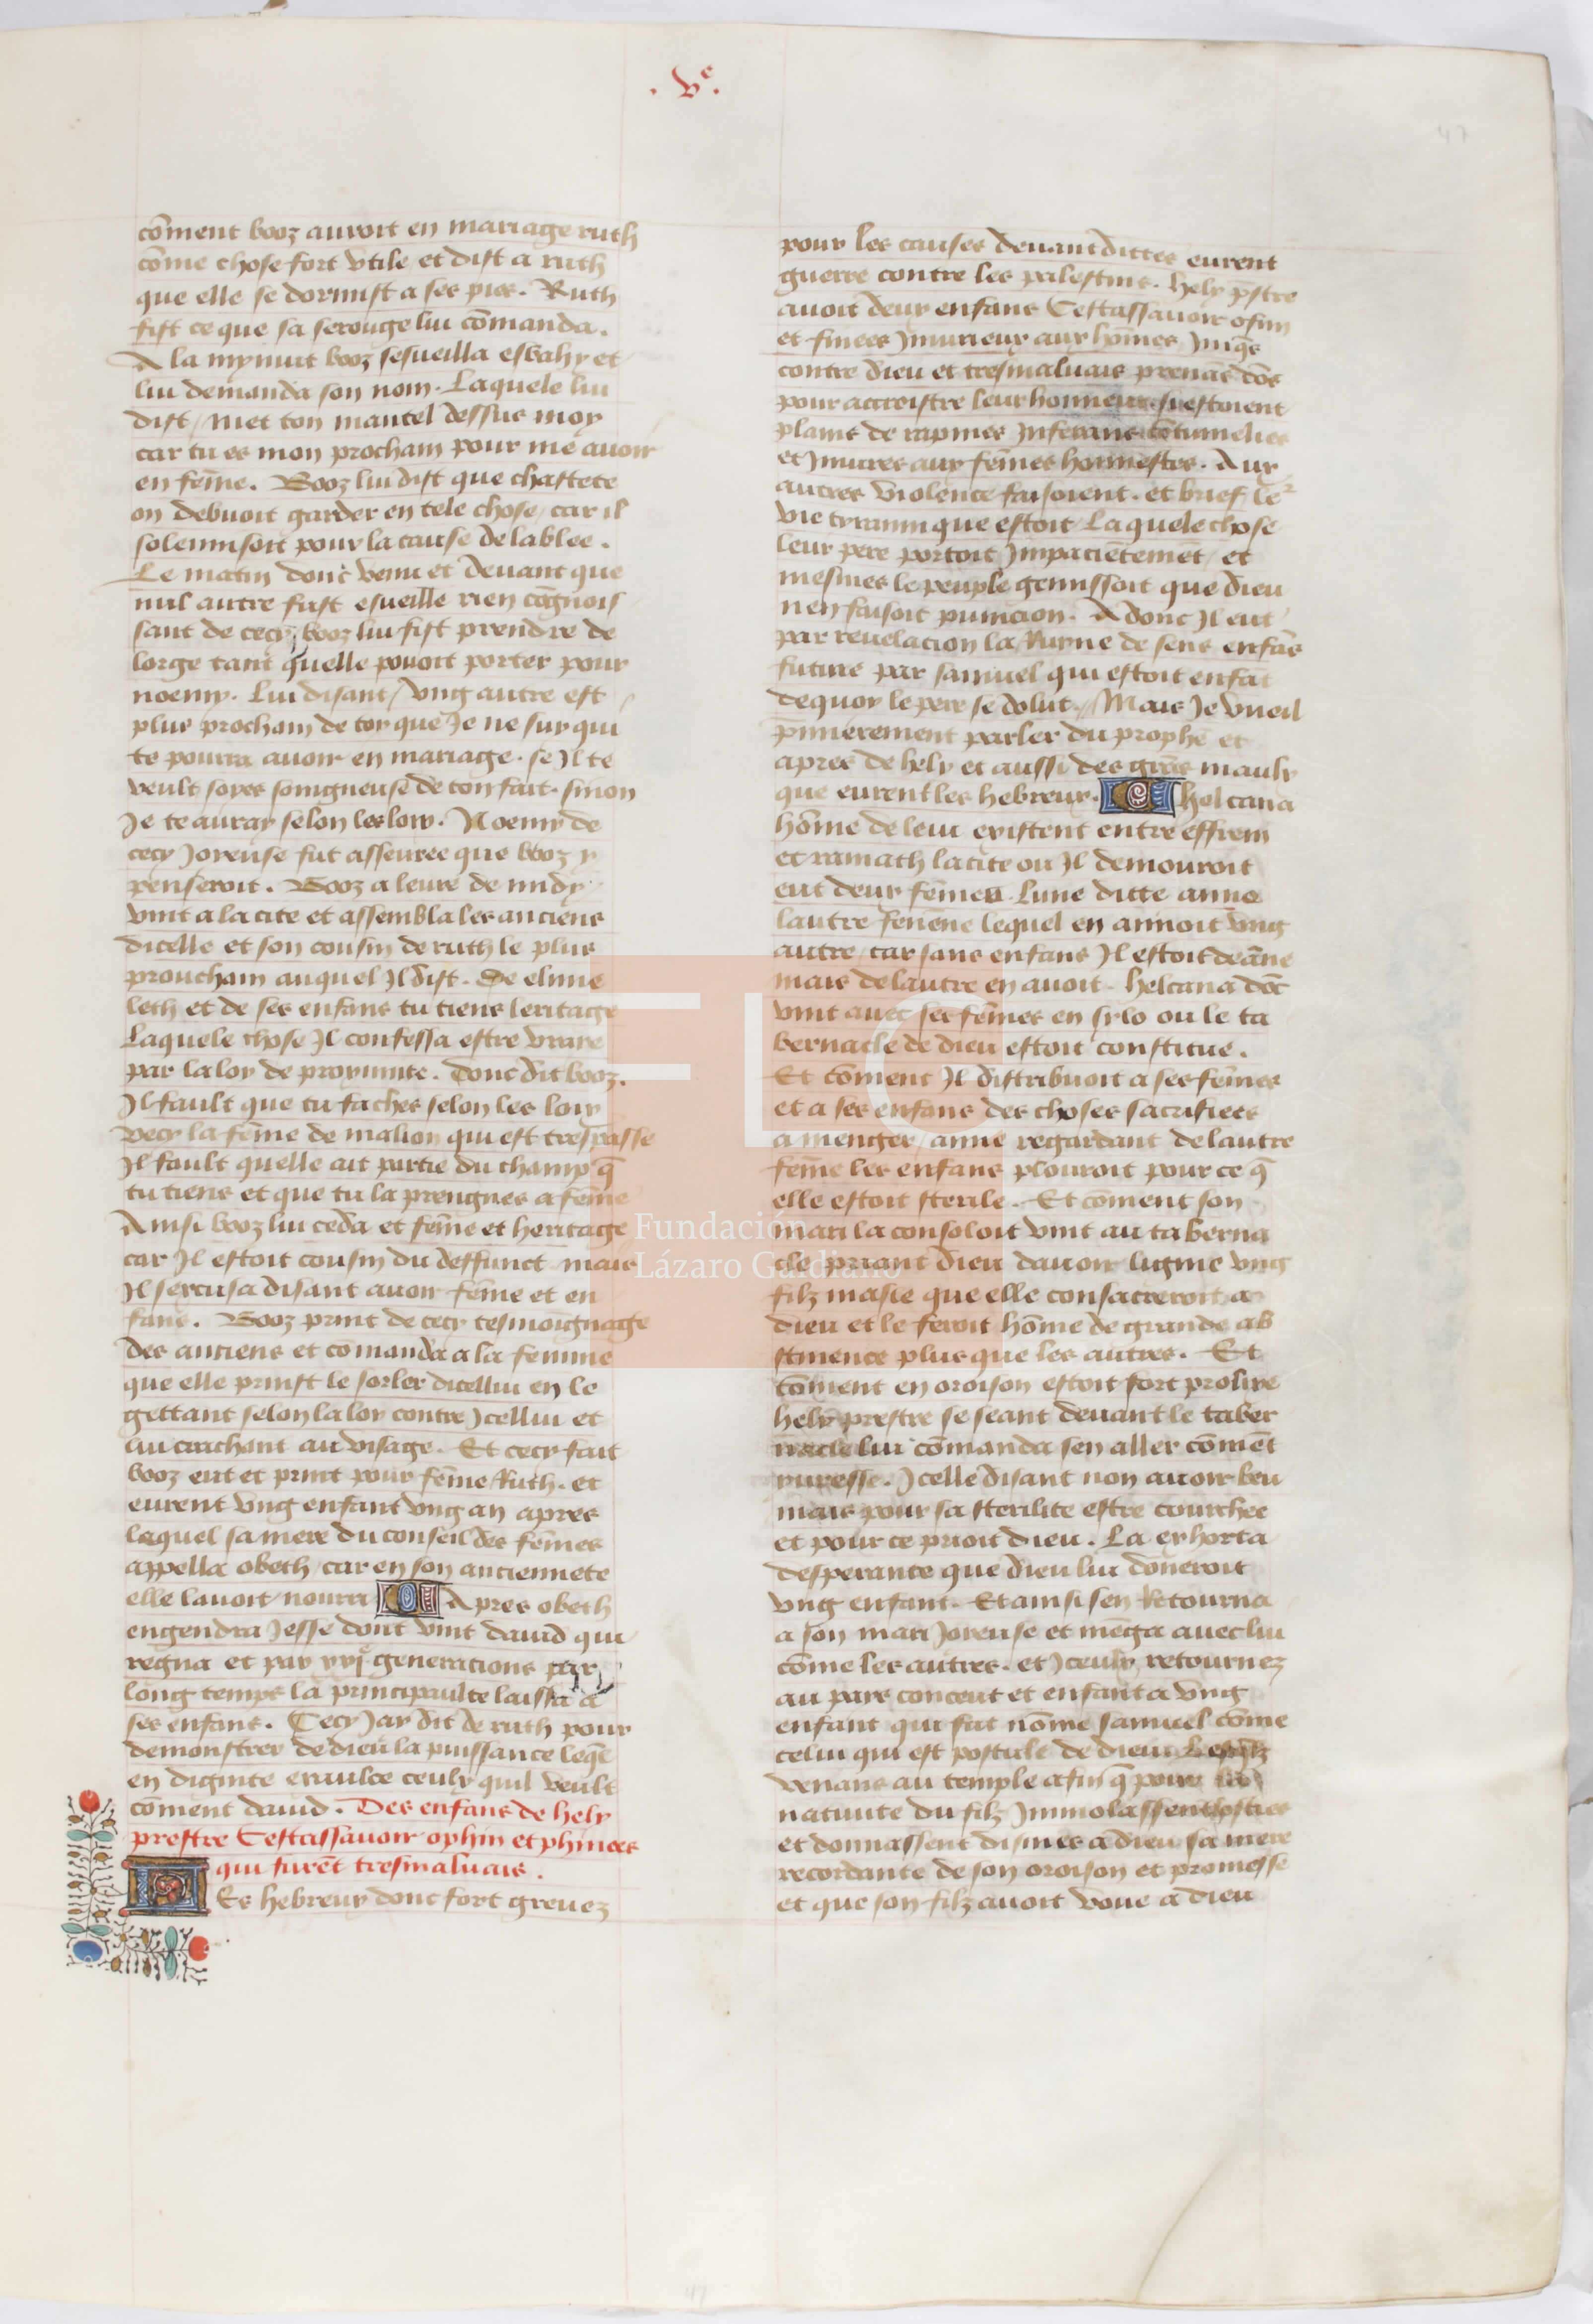 .Ve.
47
cōment booz auroit en mariage ruth
cōme chose fort vtile et dist a ruth
que elle se dormist a ses pies. Ruth
fist ce que sa serouge lui cōmanda.
A la mynuit booz sesueilla esbahy et
lui demanda son nom. Laquele lui
dist / Met ton mantel dessus moy
car tu es mon procham pour me auoir
en fēme. Booz lui dist que chastete
on debuoit garder en tele chose / car il
solennisoit pour la cause de lablee.
Le matin donc venu et deuant que
nul autre fust esueille rien cōgnois
sant de cecy booz lui fist prendre de
lorge tant quelle pouoit porter pour
noemy. Lui disant / vng autre est
plus procham de toy que Je ne suy qui
te pourra auoir en mariage. se Il te
veult soyes songneuse de ton fait. sinon
Je te auray selon les loix. Noemy de
cecy Joyeuse fut asseuree que booz y
penseroit. Booz a leure de midy
vint a la cite et assembla les anciens
dicelle et son cousin de ruth le plus
proucham auquel Il dist. De elime
lech et de ses enfans tu tiens leritage
Laquele chose Il confessa estre vraye
par la loy de proximite. Donc dit booz.
Il fault que tu faches selon les loix
vecy la fēme de malion qui est trespasse
Il fault quelle ait partie du champ q̄
tu tiens et que tu la prengnes a fēme
Ainsi booz lui ceda et fēme et heritage
car Il estoit cousin du deffunct mais
Il sexcusa disant auoir fēme et en
fans. Booz print de cecy tesmoignage
des anciens et cōmanda a la femme
que elle prinst le sorler dicellui en le
gettant selon la loy contre Jcellui et
lui crachant au visage. Et cecy fait
booz eut et print pour fēme Ruth. et
eurent vng enfant vng an apres
lequel sa mere du conseil des fēmes
appella obeth / car en son anciennete
elle lauoit nourri Apres obeth
engendra Jesse dont vint dauid qui
regna et par xxj generacions par
long temps la principaulte laissa a
ses enfans. Cecy Jay dit de ruth pour
demonstrer de dieu la puissance leq̄l
en dignite exaulce ceulx quil veult
cōment dauid. Des enfans de hely
prestre Cestassauoir ophin et phinees
qui furēt tresmaluais.
Les hebreux donc fort greuez
pour les causes deuant dittes eurent
guerre contre les palestins. hely pstre
auoit deux enfans Cestassauoir ofim
et finees Jniurieux aux hōmes Jniq̄s
contre dieu et tresmaluais prenās dōs
pour accroistre leur honneur. si estoient
plains de rapines Inferans cōtumelies
et Jniures aux fēmes honnestes. Aux
autres violence faisoient. et brief le2
vie tyrannique estoit / Laquele chose
leur pere portoit Jmpaciētemēt / et
mesmes le peuple gemissoit que dieu
nen faisoit punicion. Adonc Il eut
par reuelacion la Ruyne de sens enfās
future par samuel qui estoit enfāt
dequoy le pere se dolut. / Mais Je vueil
p̄mierement parler du prophe et
apres de hely et aussi des grās maulx
que eurent les hebreux. Helcana
hōme de leui existent entre effrem
et ramath la cite ou Il demouroit
eut deux fēmes. Lune ditte anne
lautre fenēne lequel en aimoit vng
autre / car sans enfans Il estoit de āne
mais de lautre en auoit. helcana dōc
vint auec ses fēmes en sylo ou le ta
bernacle de dieu estoit constitue.
Et cōment Il distribuoit a ses fēmes
et a ses enfans des choses sacrifiees
a menger / anne regardant de lautre
fēme les enfans plouroit pour ce q̄
elle estoit sterile. Et cōment son
mari la consoloit vint au taberna
cle priant dieu dauoir ligme vng
filz masle que elle consacreroit a
dieu et le feroit hōme de grande ab
stinence plus que les autres. Et
cōment en oroison estoit fort prolixe
hely prestre se seant deuant le taber
nacle lui cōmanda sen aller cōmēt
yuresse. Jcelle disant non auoir beu
mais pour sa sterilite estre courchee
et pour ce prioit dieu. La exhorta
desperance que dieu lui dōneroit
vng enfant. Et ainsi sen Retourna
a son mari Joyeuse et mēga auec lui
cōme les autres. et Jceulx retournez
au pays conceut et enfanta vng
enfant qui fut nōme samuel cōme
celui qui est postule de dieu. Lesq̄lz
venans au temple afin q̄ pour la
natiuite du filz Jmmolassent hosties
et donnassent dismes a dieu sa mere
recordante de son oroison et promesse
et que son filz auoit voue a dieu
Fundación
Lázaro Galdiano